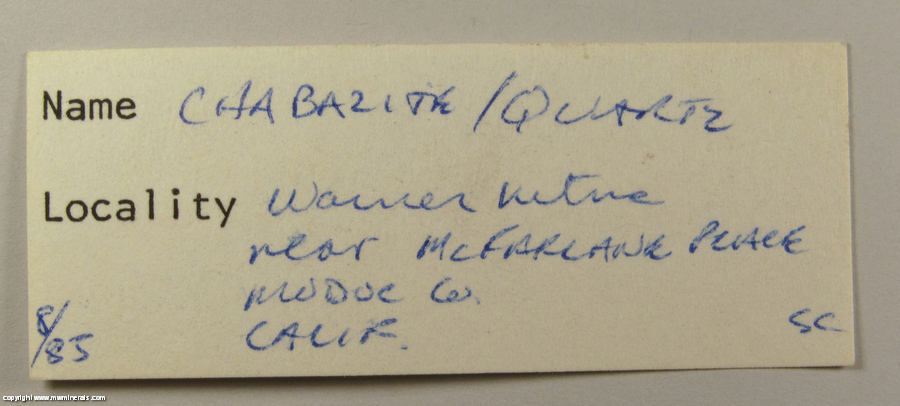 Name CHABAZITE / QUARTZ
Locality Warner
near McFARLANE PLACE
MODOC Co.
CALIF.
8/85
SC
copyright www.mwminerals.com